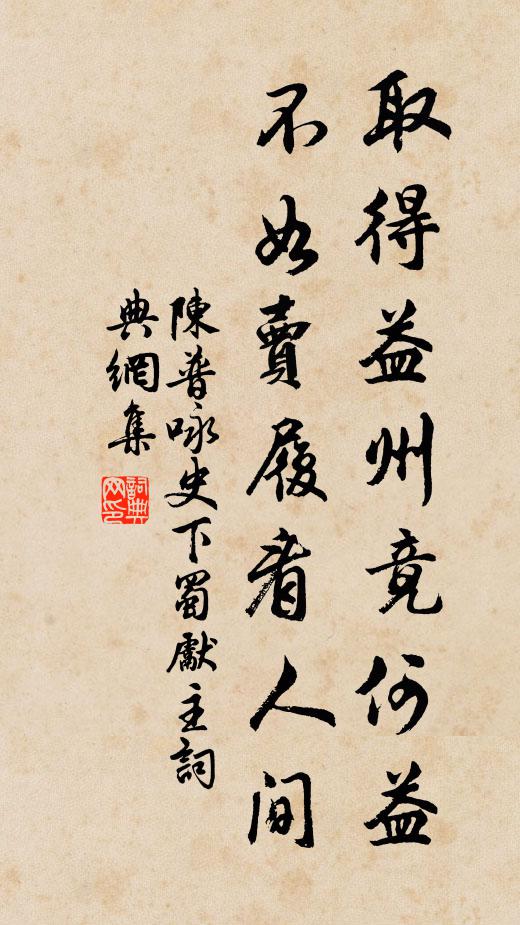 取得益州竟何益
不如賣履看人間
陳普咏史下蜀獻主詞
典網集
詞典
网印